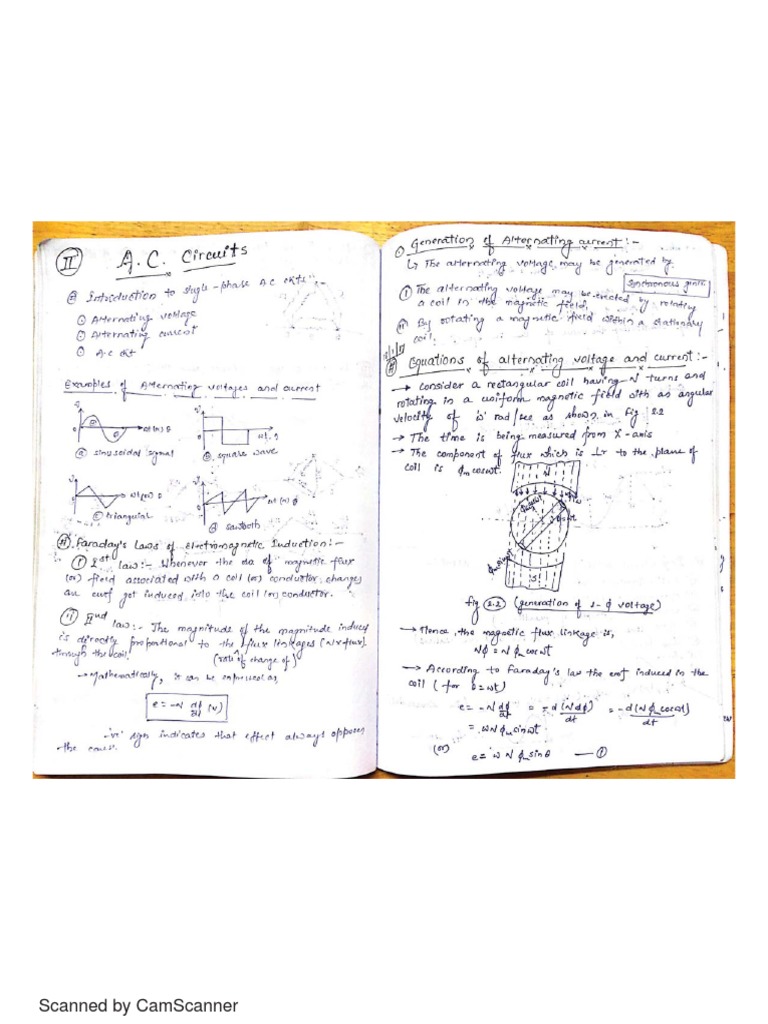 II A.C. Circuits
Introduction to single-phase A.C ckts :-
Alternating voltage
Alternating current
A.C ckt
Examples of Alternating voltages and current
ⓐ sinusoidal signal
ⓑ square wave
ⓒ triangular
ⓓ sawtooth
Faraday's Laws of electromagnetic Induction:-
① Ist law:- Whenever the magnetic flux
(or) field associated with a coil (or) conductor, changes
an emf got induced into the coil (or) conductor.
ii) IInd law:- The magnitude of the magnitude induced
is directly proportional to the flux linkages (N x flux)
through the coil. (rate of change of)
→ Mathematically, it can be expressed as
e = -N dφ/dt (v)
'-ve' sign indicates that effect always opposes
the cause.
Generation of Alternating current:-
↳ The alternating voltage may be generated by
① The alternating voltage may be erected by rotating
a coil in the magnetic field. Synchronous
ii By rotating a magnetic field within a stationary
coil.
Equations of alternating voltage and current:-
→ consider a rectangular coil having N turns and
rotating in a uniform magnetic field with as angular
velocity of ω rad/sec as shown in fig 2.2
→ The time is being measured from X-axis
→ The component of flux which is Lr to the plane of
coil is φm cosωt.
N
S
fig 2.2 (generation of 1-φ voltage)
→ Hence, the magnetic flux linkage is,
Nφ = N φm cosωt
→ According to Faraday's law the emf induced in the
coil (for θ=ωt)
e = -N dφ/dt = -d(Ndφ)/dt = -d(N φm cosωt)/dt
= ωN φm sinωt
(or)
e = ω N φm sinθ — ①
Scanned by CamScanner